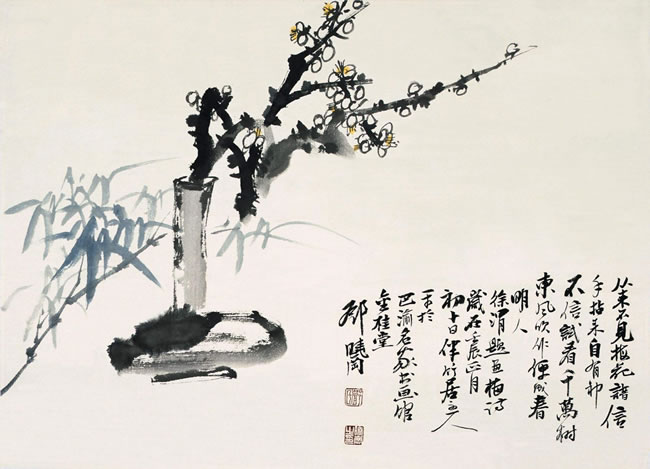 从来不見梅花譜信
手拈来自有神
不信試看千萬樹
東風吹作便成春
明人
徐渭題画梅詩
歲在壬辰正月
初十日伴竹居主人
於
巴渝名家书画馆
金桂堂